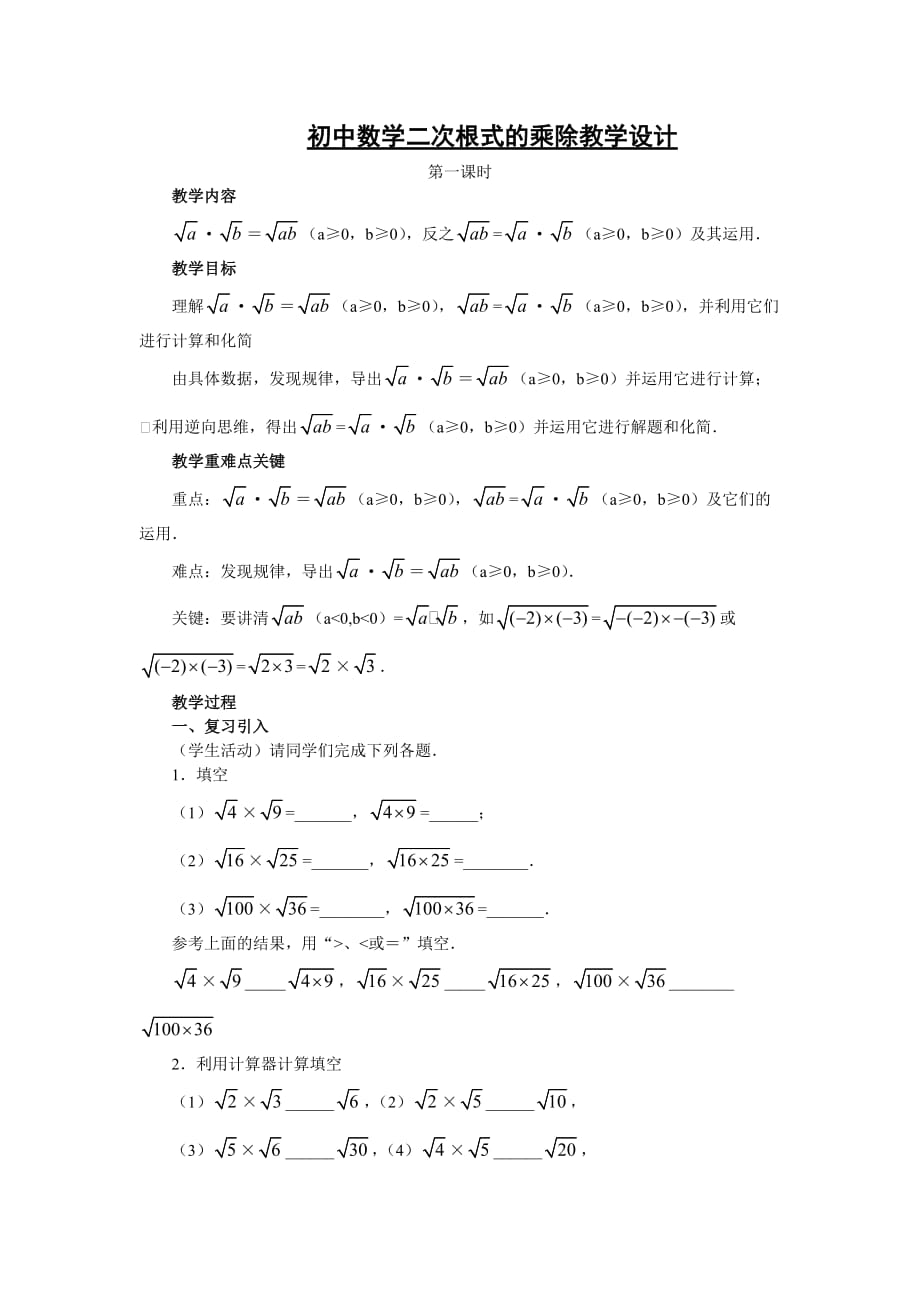 初中数学二次根式的乘除教学设计
第一课时
教学内容
√a・√b＝√ab（a≥0，b≥0），反之√ab=√a・√b（a≥0，b≥0）及其运用．
教学目标
理解√a・√b＝√ab（a≥0，b≥0），√ab=√a・√b（a≥0，b≥0），并利用它们
进行计算和化简
由具体数据，发现规律，导出√a・√b＝√ab（a≥0，b≥0）并运用它进行计算；
□利用逆向思维，得出√ab=√a・√b（a≥0，b≥0）并运用它进行解题和化简．
教学重难点关键
重点：√a・√b＝√ab（a≥0，b≥0），√ab=√a・√b（a≥0，b≥0）及它们的
运用．
难点：发现规律，导出√a・√b＝√ab（a≥0，b≥0）．
关键：要讲清√ab（a<0,b<0）=√a□√b，如√(−2)×(−3)=√−(−2)×−(−3)或
√(−2)×(−3)=√2×3=√2×√3．
教学过程
一、复习引入
（学生活动）请同学们完成下列各题．
1．填空
（1）√4×√9=_______，√4×9=______；
（2）√16×√25=_______，√16×25=________．
（3）√100×√36=________，√100×36=_______．
参考上面的结果，用“>、<或＝”填空．
√4×√9_____√4×9，√16×√25_____√16×25，√100×√36________
√100×36
2．利用计算器计算填空
（1）√2×√3______√6，（2）√2×√5______√10，
（3）√5×√6______√30，（4）√4×√5______√20，